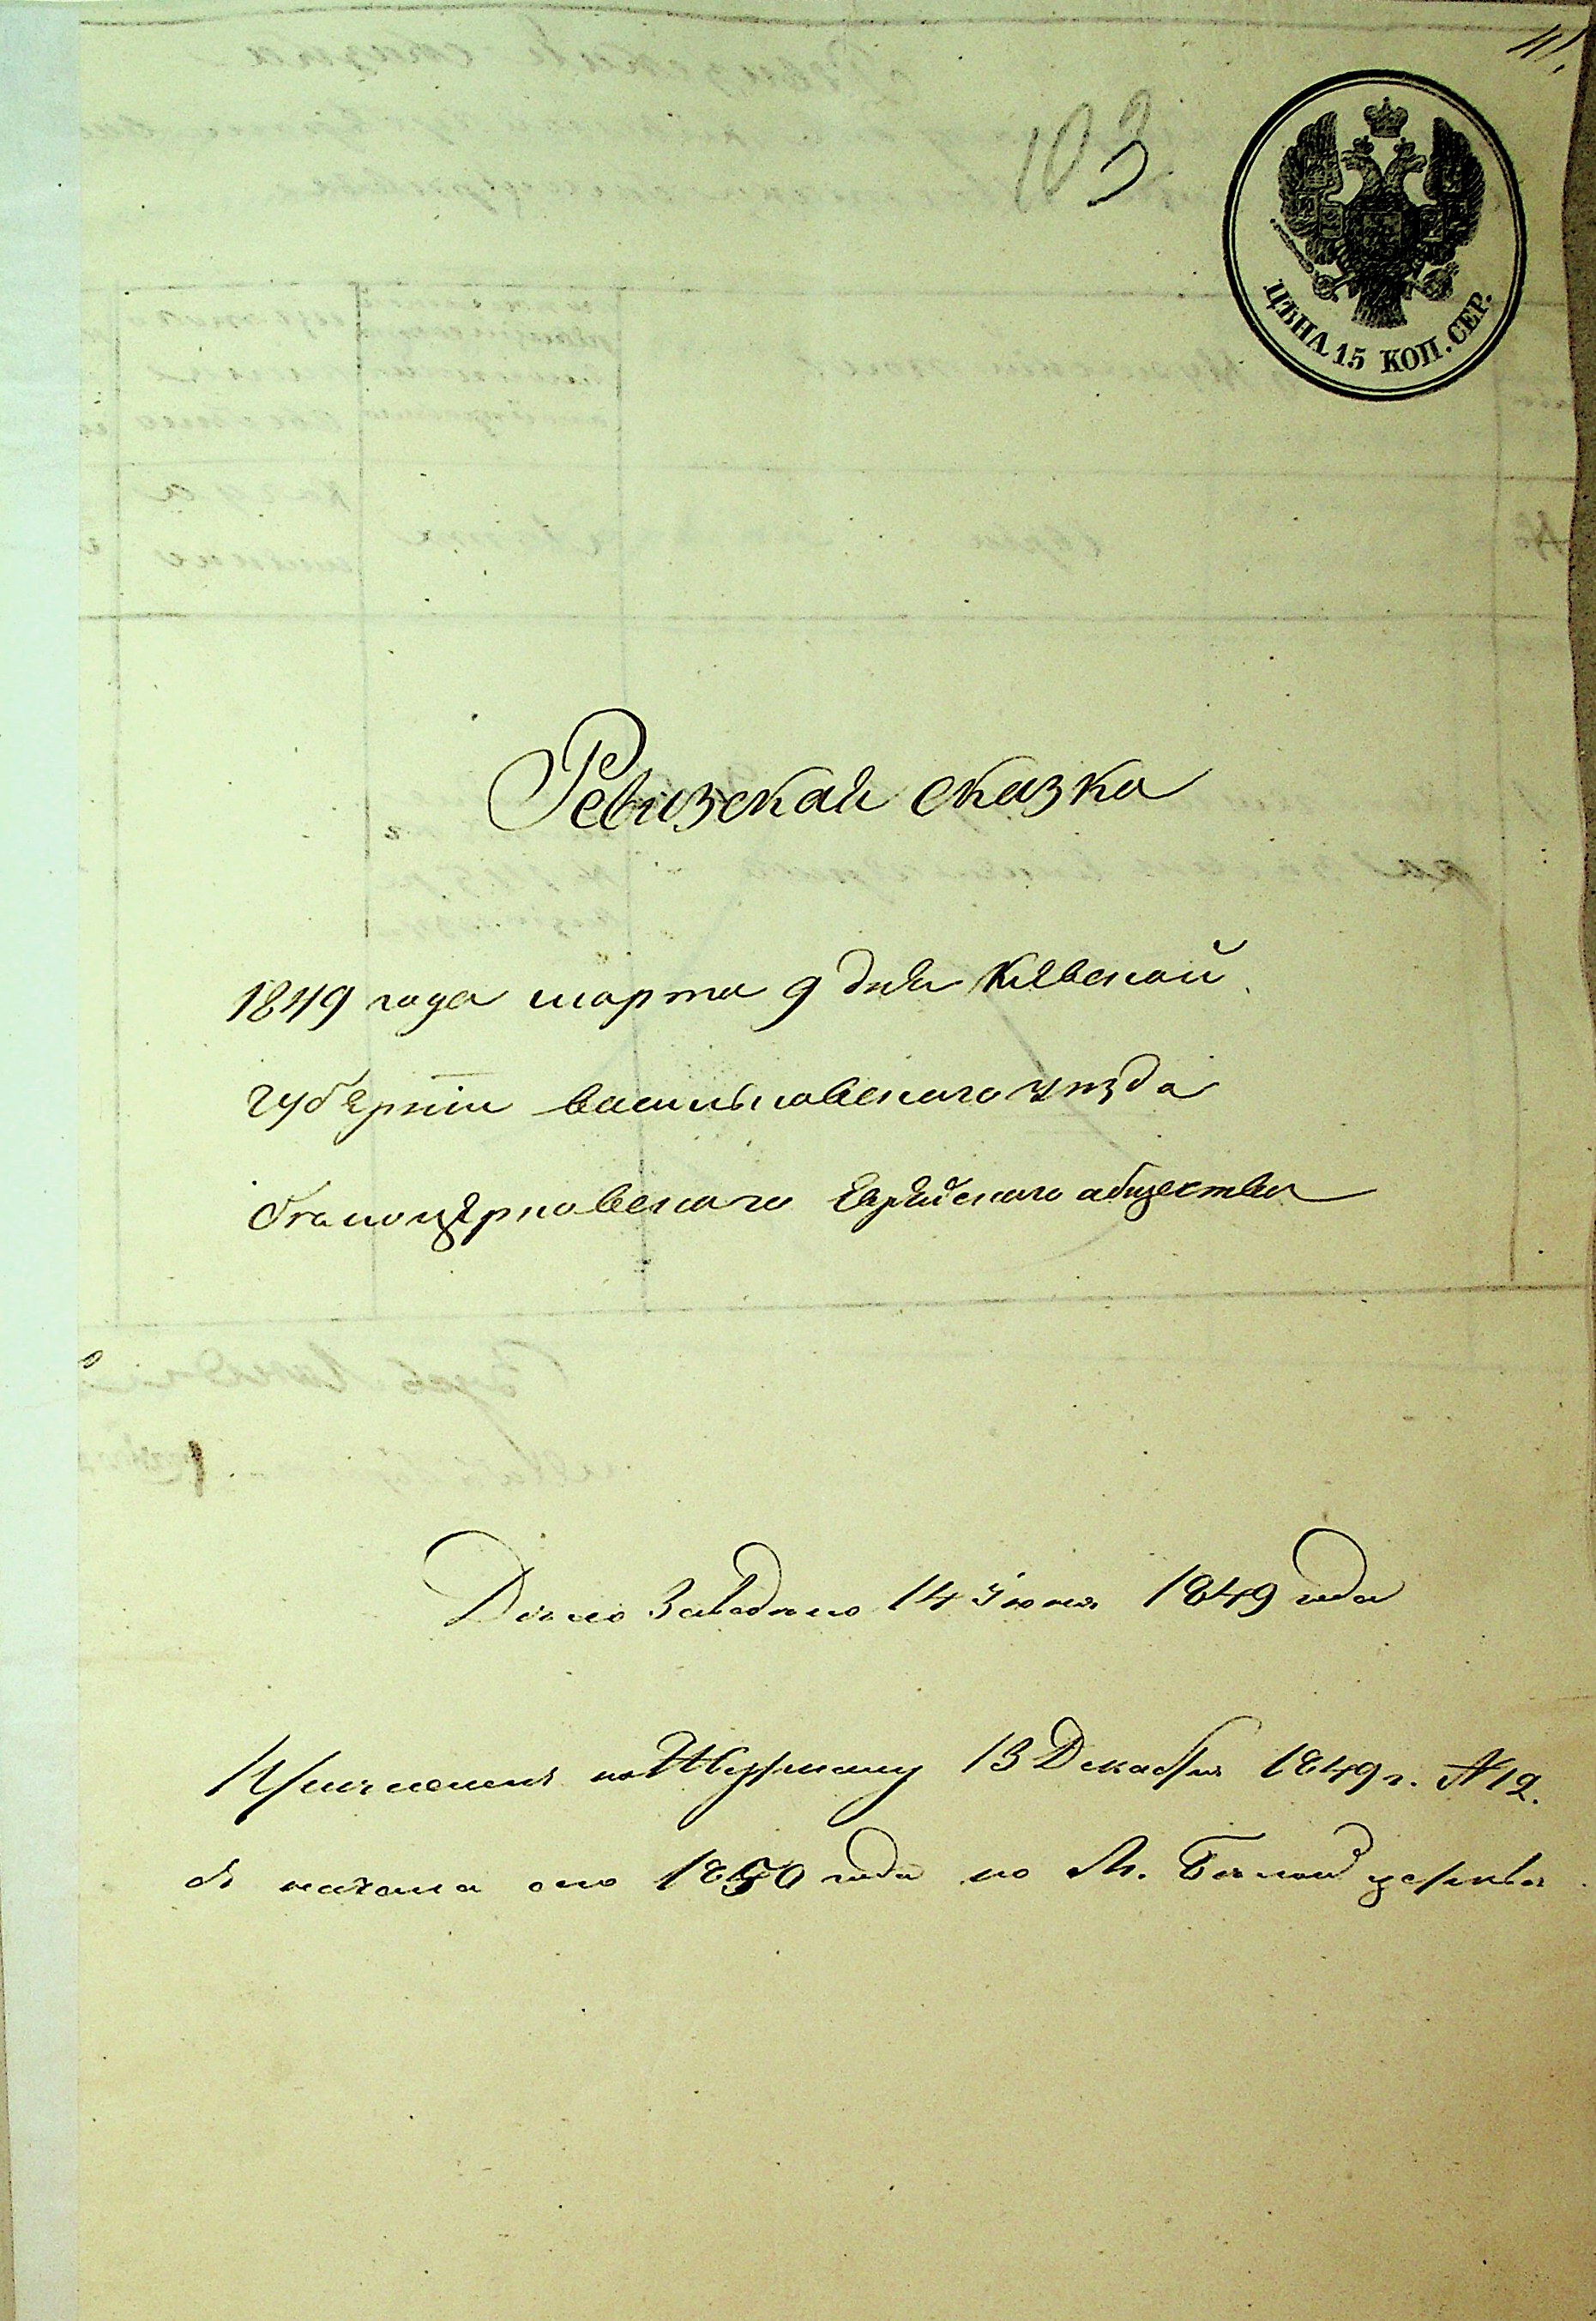 11.
103
ЦѢНА 15 КОП. СЕР.
Ревизская сказка
1849 года марта 9 дня Киевской
губерніи васильковского уезда
белоцерковского Еврейского общества
Дело Заведено 14 Июня 1849 года
Причисленъ по Журналу 13 Декабря 1849 г. № 12.
съ начала 1850 года по М. Белой церкви